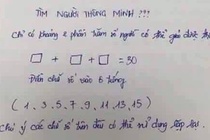 TÌM NGƯỜI THÔNG MINH !!!
Chỉ có khoảng 2 phần trăm số người có thể giải được
□ + □ + □ = 30
Điền chữ số vào ô trống
( 1, 3, 5, 7, 9, 11, 13, 15)
Chú ý các chữ số trên đều có thể sử dụng lặp lại.